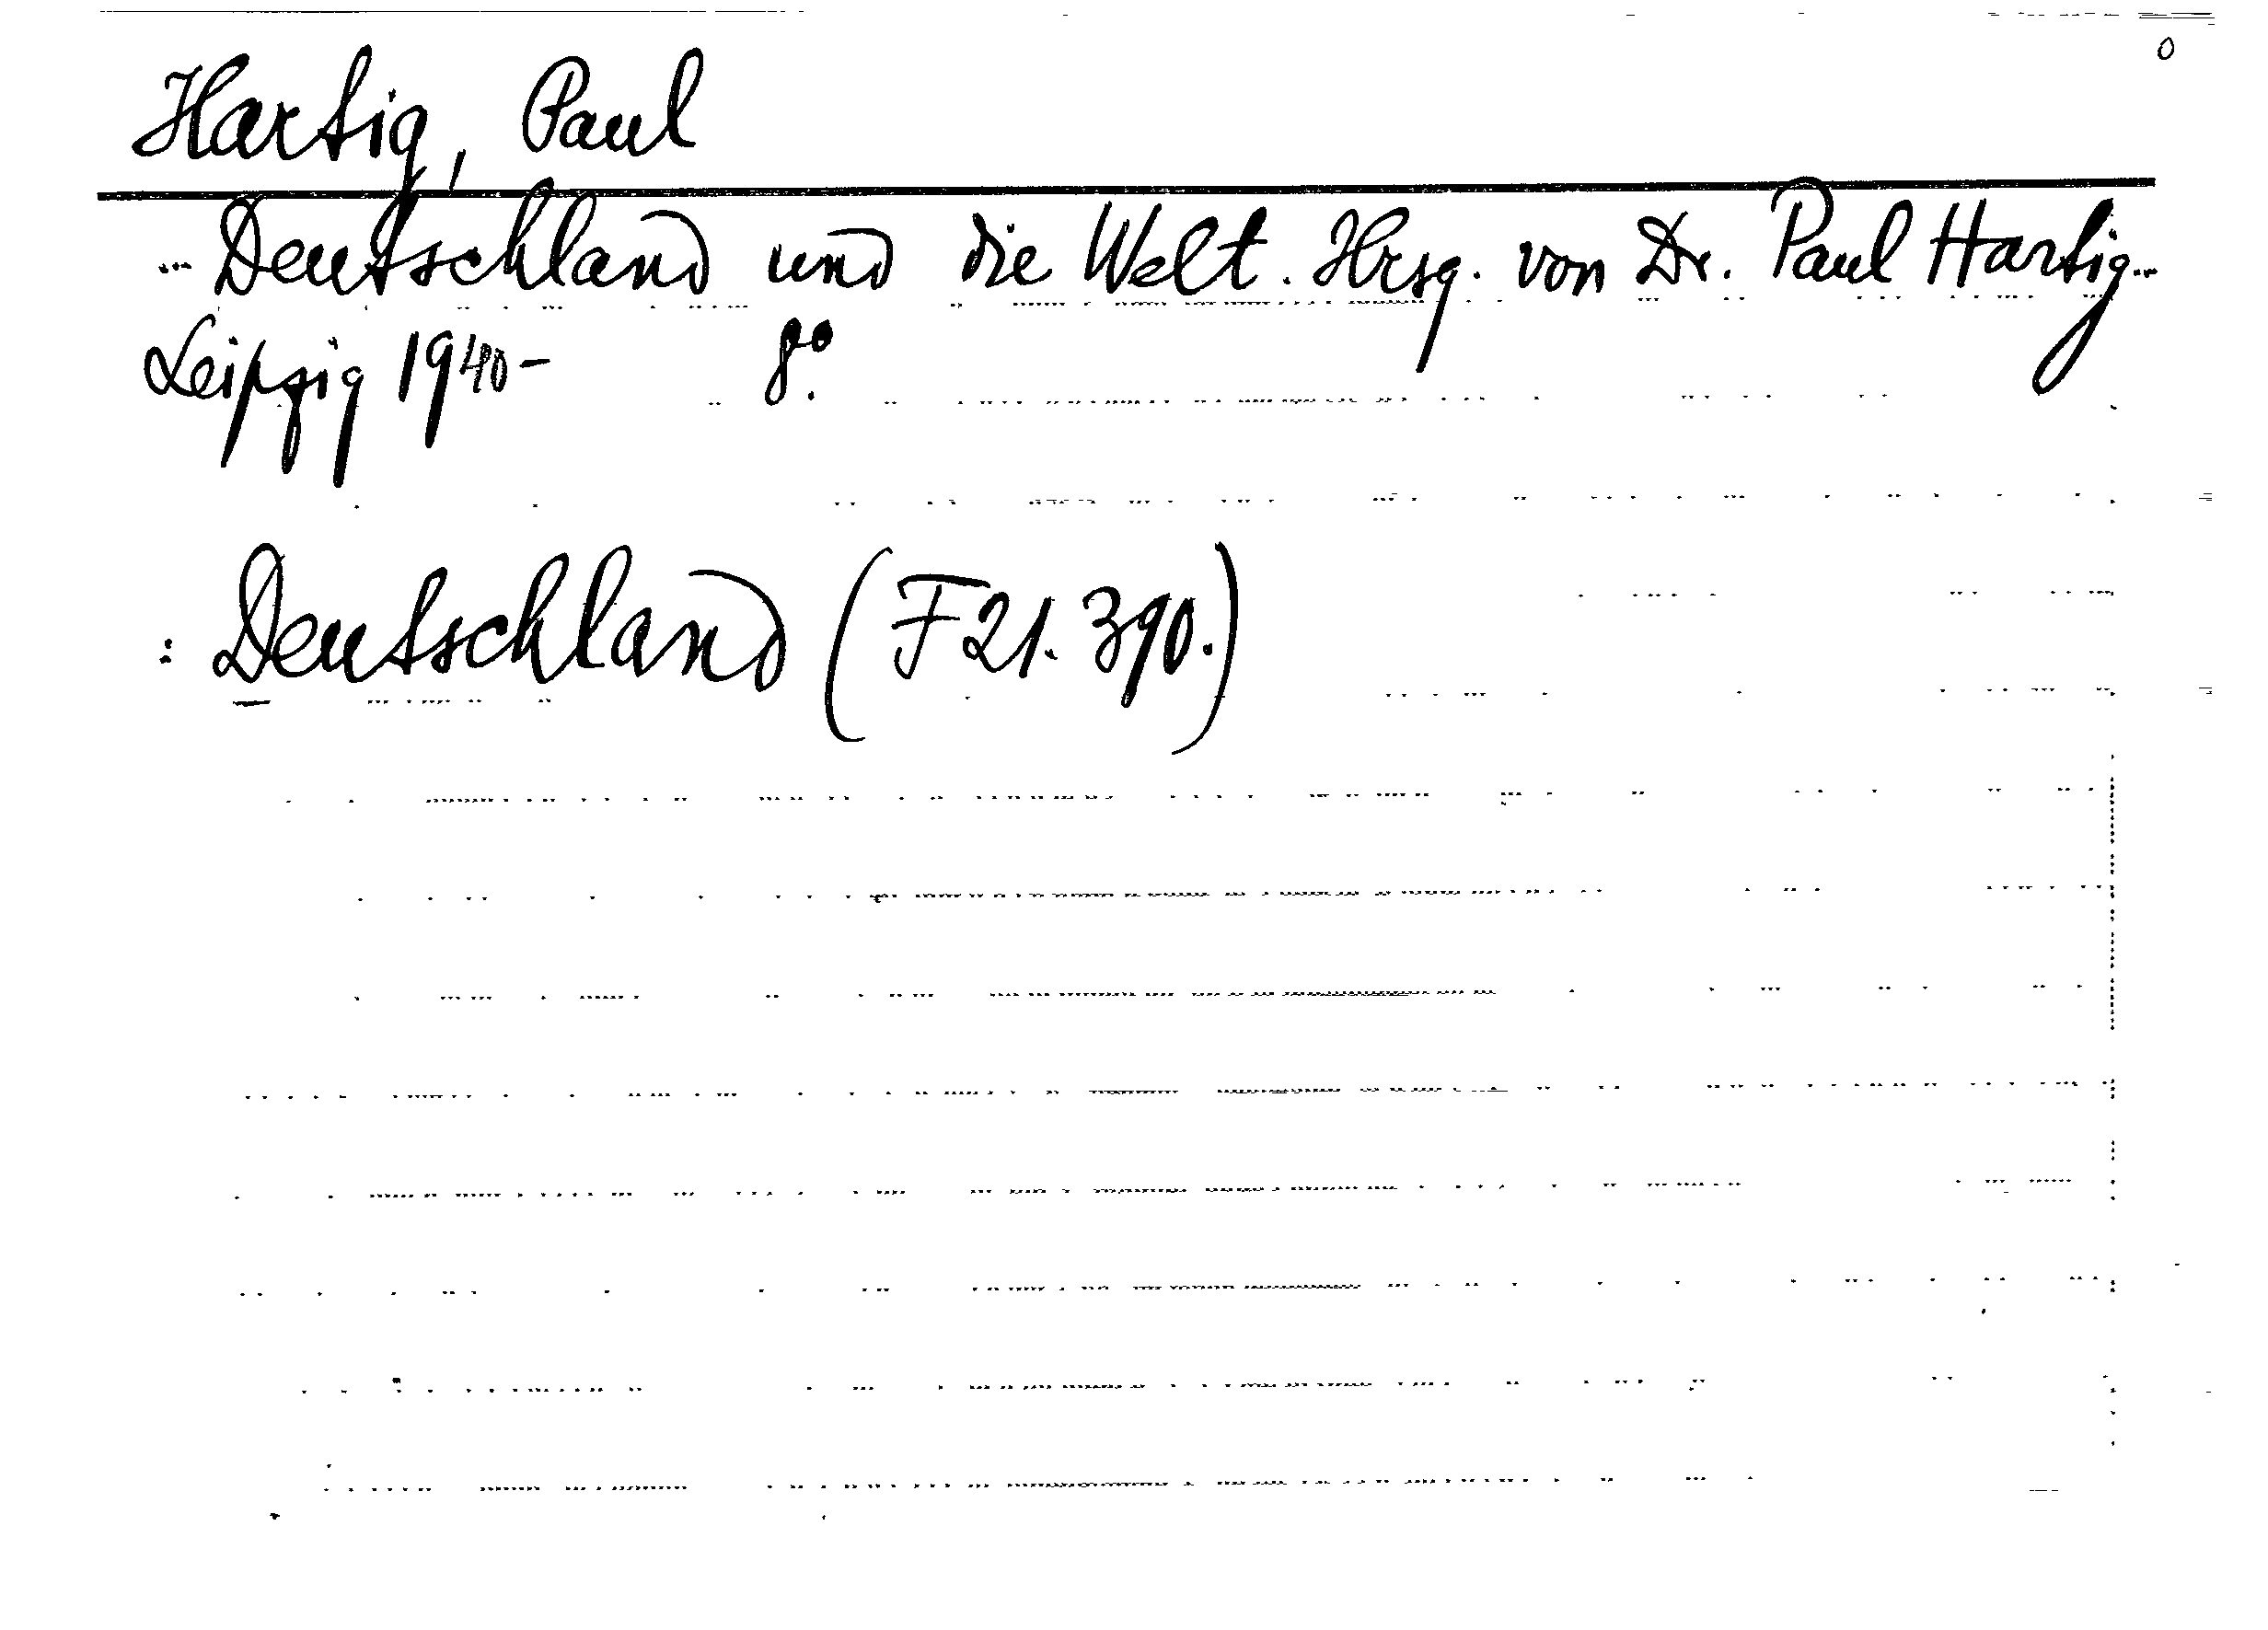 0
Hartig, Paul
... Deutschland und die Welt. Hrsg. von Dr. Paul Hartig...
Leipzig 1940- 8°.
: Deutschland (F 21. 390.)